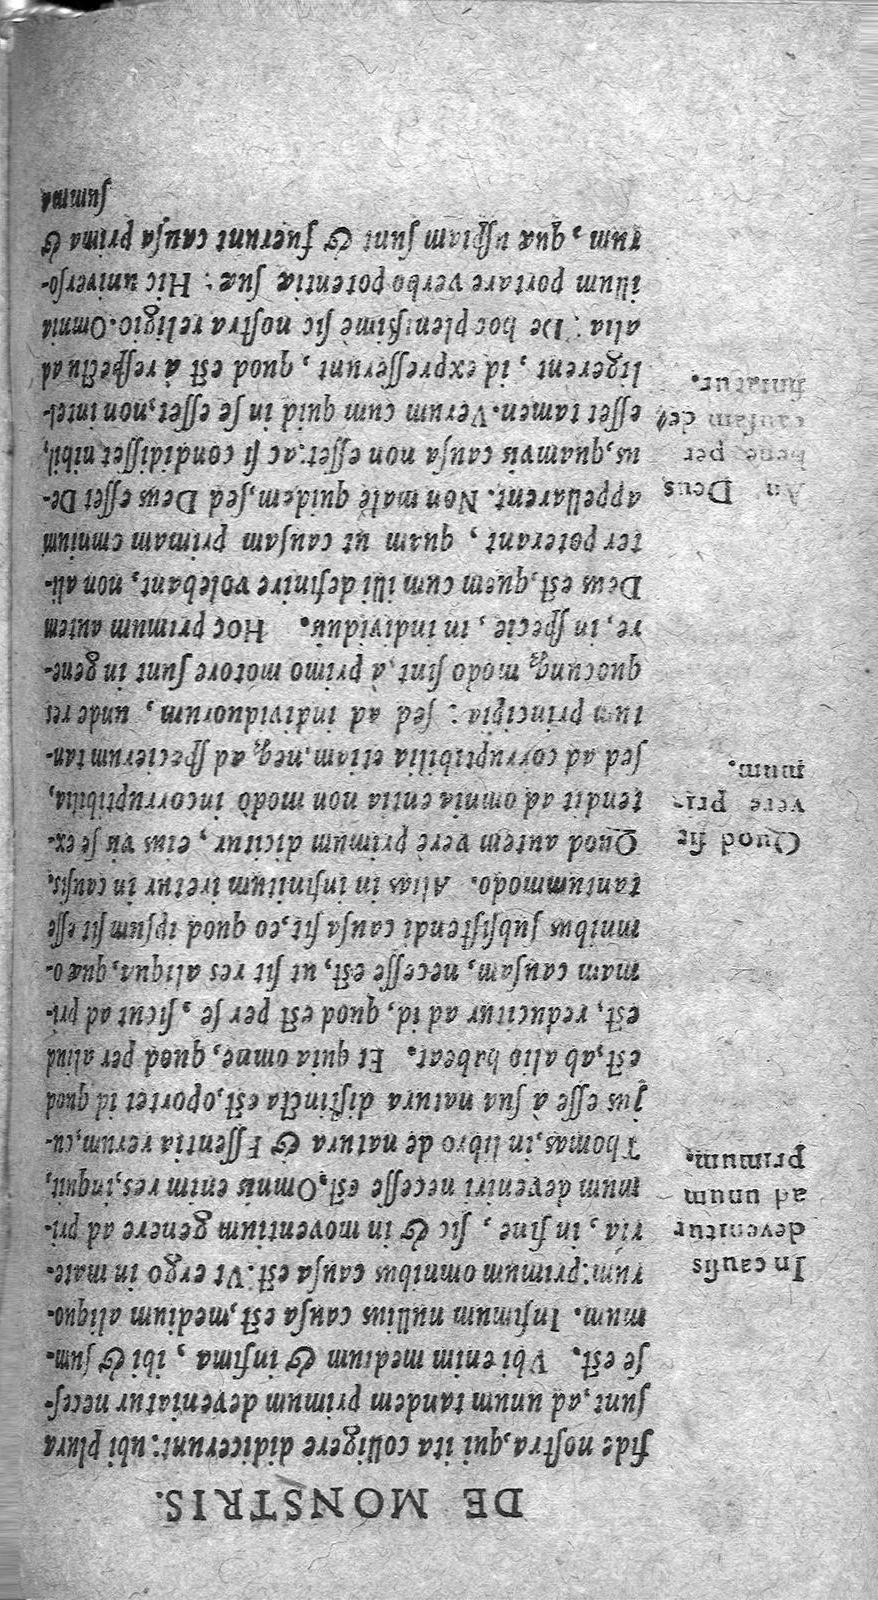 DE MONSTRIS.
fide noſtra, qui ita colligere didicerunt: ubi plura
ſunt, ad unum tandem primum deveniatur neceſ-
ſe eſt. Vbi enim medium & infima, ibi & ſum-
mum. Infimum nullius cauſa eſt, medium aliquo-
rum: primum omnibus cauſa eſt: Vt ergo in mate-
ria, in fine, ſic & in moventium genere ad pri-
mum deveniri neceſſe eſt. Omnis enim res, inquit,
Thomas, in libro de natura & Eſſentia rerum, cu-
jus eſſe à ſua natura diſtincta eſt, oportet id quod
eſt, ab alio habeat. Et quia omne, quod per aliud
eſt, reducitur ad id, quod eſt per ſe, ſicut ad pri-
mam cauſam, neceſſe eſt, ut ſit res aliqua, quæ o-
mnibus ſubſiſtendi cauſa ſit, eo, quod ipſum ſit eſſe
tantummodo. Alias in infinitum iretur in cauſis.
Quod autem verè primum dicitur, eius vis ſe ex-
tendit ad omnia entia non modò incorruptibilia,
ſed ad corruptibilia etiam. neq; ad ſpecierum tan-
tum principia: ſed ad individuorum, unde res
quocunq; modo ſint, à primo motore ſunt in gene-
re, in ſpecie, in individuis. Hoc primum autem
Deus eſt, quem cum illi definire volebant, non ali-
ter poterant, quam ut cauſam primam omnium
appellarent. Non malè quidem, ſed Deus eſſet De-
us, quamvis cauſa non eſſet: ac ſi condidiſſet nihil,
eſſet tamen. Verum cum quid in ſe eſſet, non intel-
ligerent, id expreſſerunt, quod eſt à reſpectu ad
alia. De hoc pleniſſimè ſic noſtra religio. Omnia
illum portare verbo potentiæ ſuæ: Hic univerſo-
rum, quæ uſpiam ſunt & fuerunt cauſa prima &
ſumma
In cauſis
devenitur
ad unum
primum.
Quod ſit
vere pri-
mum.
An Deus
bene per
cauſam def
finiatur.